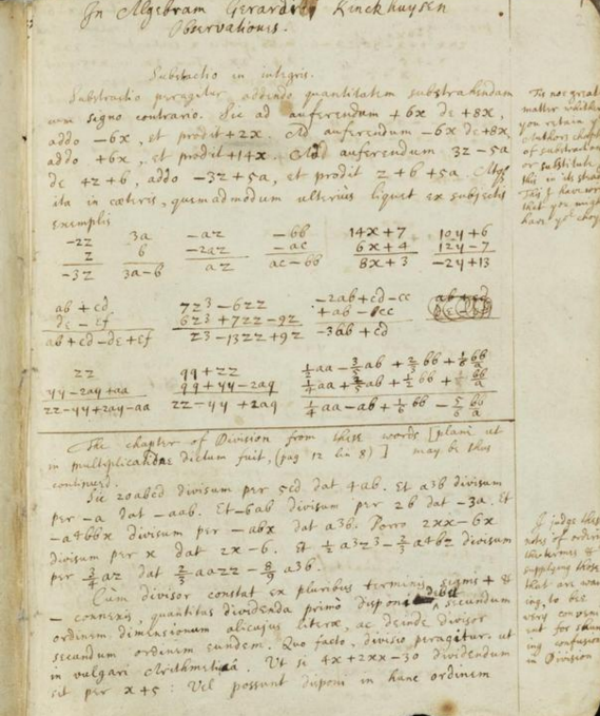 In Algebram Gerardi Kinckhuysen
Observationes.
Substractio in integris.
Substractio peragitur addendo quantitatem substrahendam
signo contrario. Sic ad auferendum +6x de +8x,
addo −6x, et prodit +2x. Ad auferendum −6x de +8x
addo +6x, et prodit +14x. Ad auferendum 3z − 5a
de +z + b, addo −3z + 5a, et prodit z + b + 5a.
ita in cæteris, quemadmodum ulterius liquet ex subjectis
exemplis
−2z 3a −az −bb 14x + 7 10y + 6
z b −2az −ac 6x + 4 12y − 7
−3z 3a−b az ac−bb 8x + 3 −2y + 13
ab + cd 7z3 − 6zz −2ab + cd − cc ab + cd
de − ef 6z3 + 7zz − 9z + ab − cc
ab + cd − de + ef z3 − 13zz + 9z −3ab + cd
zz yy + zz ½aa − ab + bb + bb/a
yy − 2ay + aa yy + yy − 2ay ¼aa + ab + ½bb + bb/a
zz − yy + 2ay − aa zz − yy + 2ay ¼aa − ab + bb − bb/a
The chapter of Division from these words [plani ut
in multiplicatione dictum fuit, (pag 12 lin 8) ] may be thus
continued.
Sic 20abcd divisum per 5cd dat 4ab. Et a3b divisum
per −a dat −aab. Et −6ab divisum per 2b dat −3a. Et
−a4bbx divisum per −abx dat a3b. Porro 2xx − 6x
divisum per x dat 2x − 6. Et ½a3z3 − ⅔a4bz divisum
per ¾az dat ⅔aazz − 8/9 a3b.
Cùm divisor constat ex pluribus terminis signis + &
− connexis, quantitas dividenda primo disponi debet secundum
ordinem dimensionum alicujus literæ, ac deinde divisor
secundum ordinem eundem. Quo facto, divisio peragitur ut
in vulgari Arithmetica. Ut si 4x + 2xx − 30 dividendum
sit per x + 5: Vel possunt disponi in hunc ordinem
Tis not great
matter whither
you retain ye
Authors chapt
of substraction
or substitute
this in its stead
This I have wr
that you might
have ye choy
I judge this
notes of orderi
the termes &
supplying those
that are wan
ing, to be
very conveni
ent for shun
ing confusion
in Division